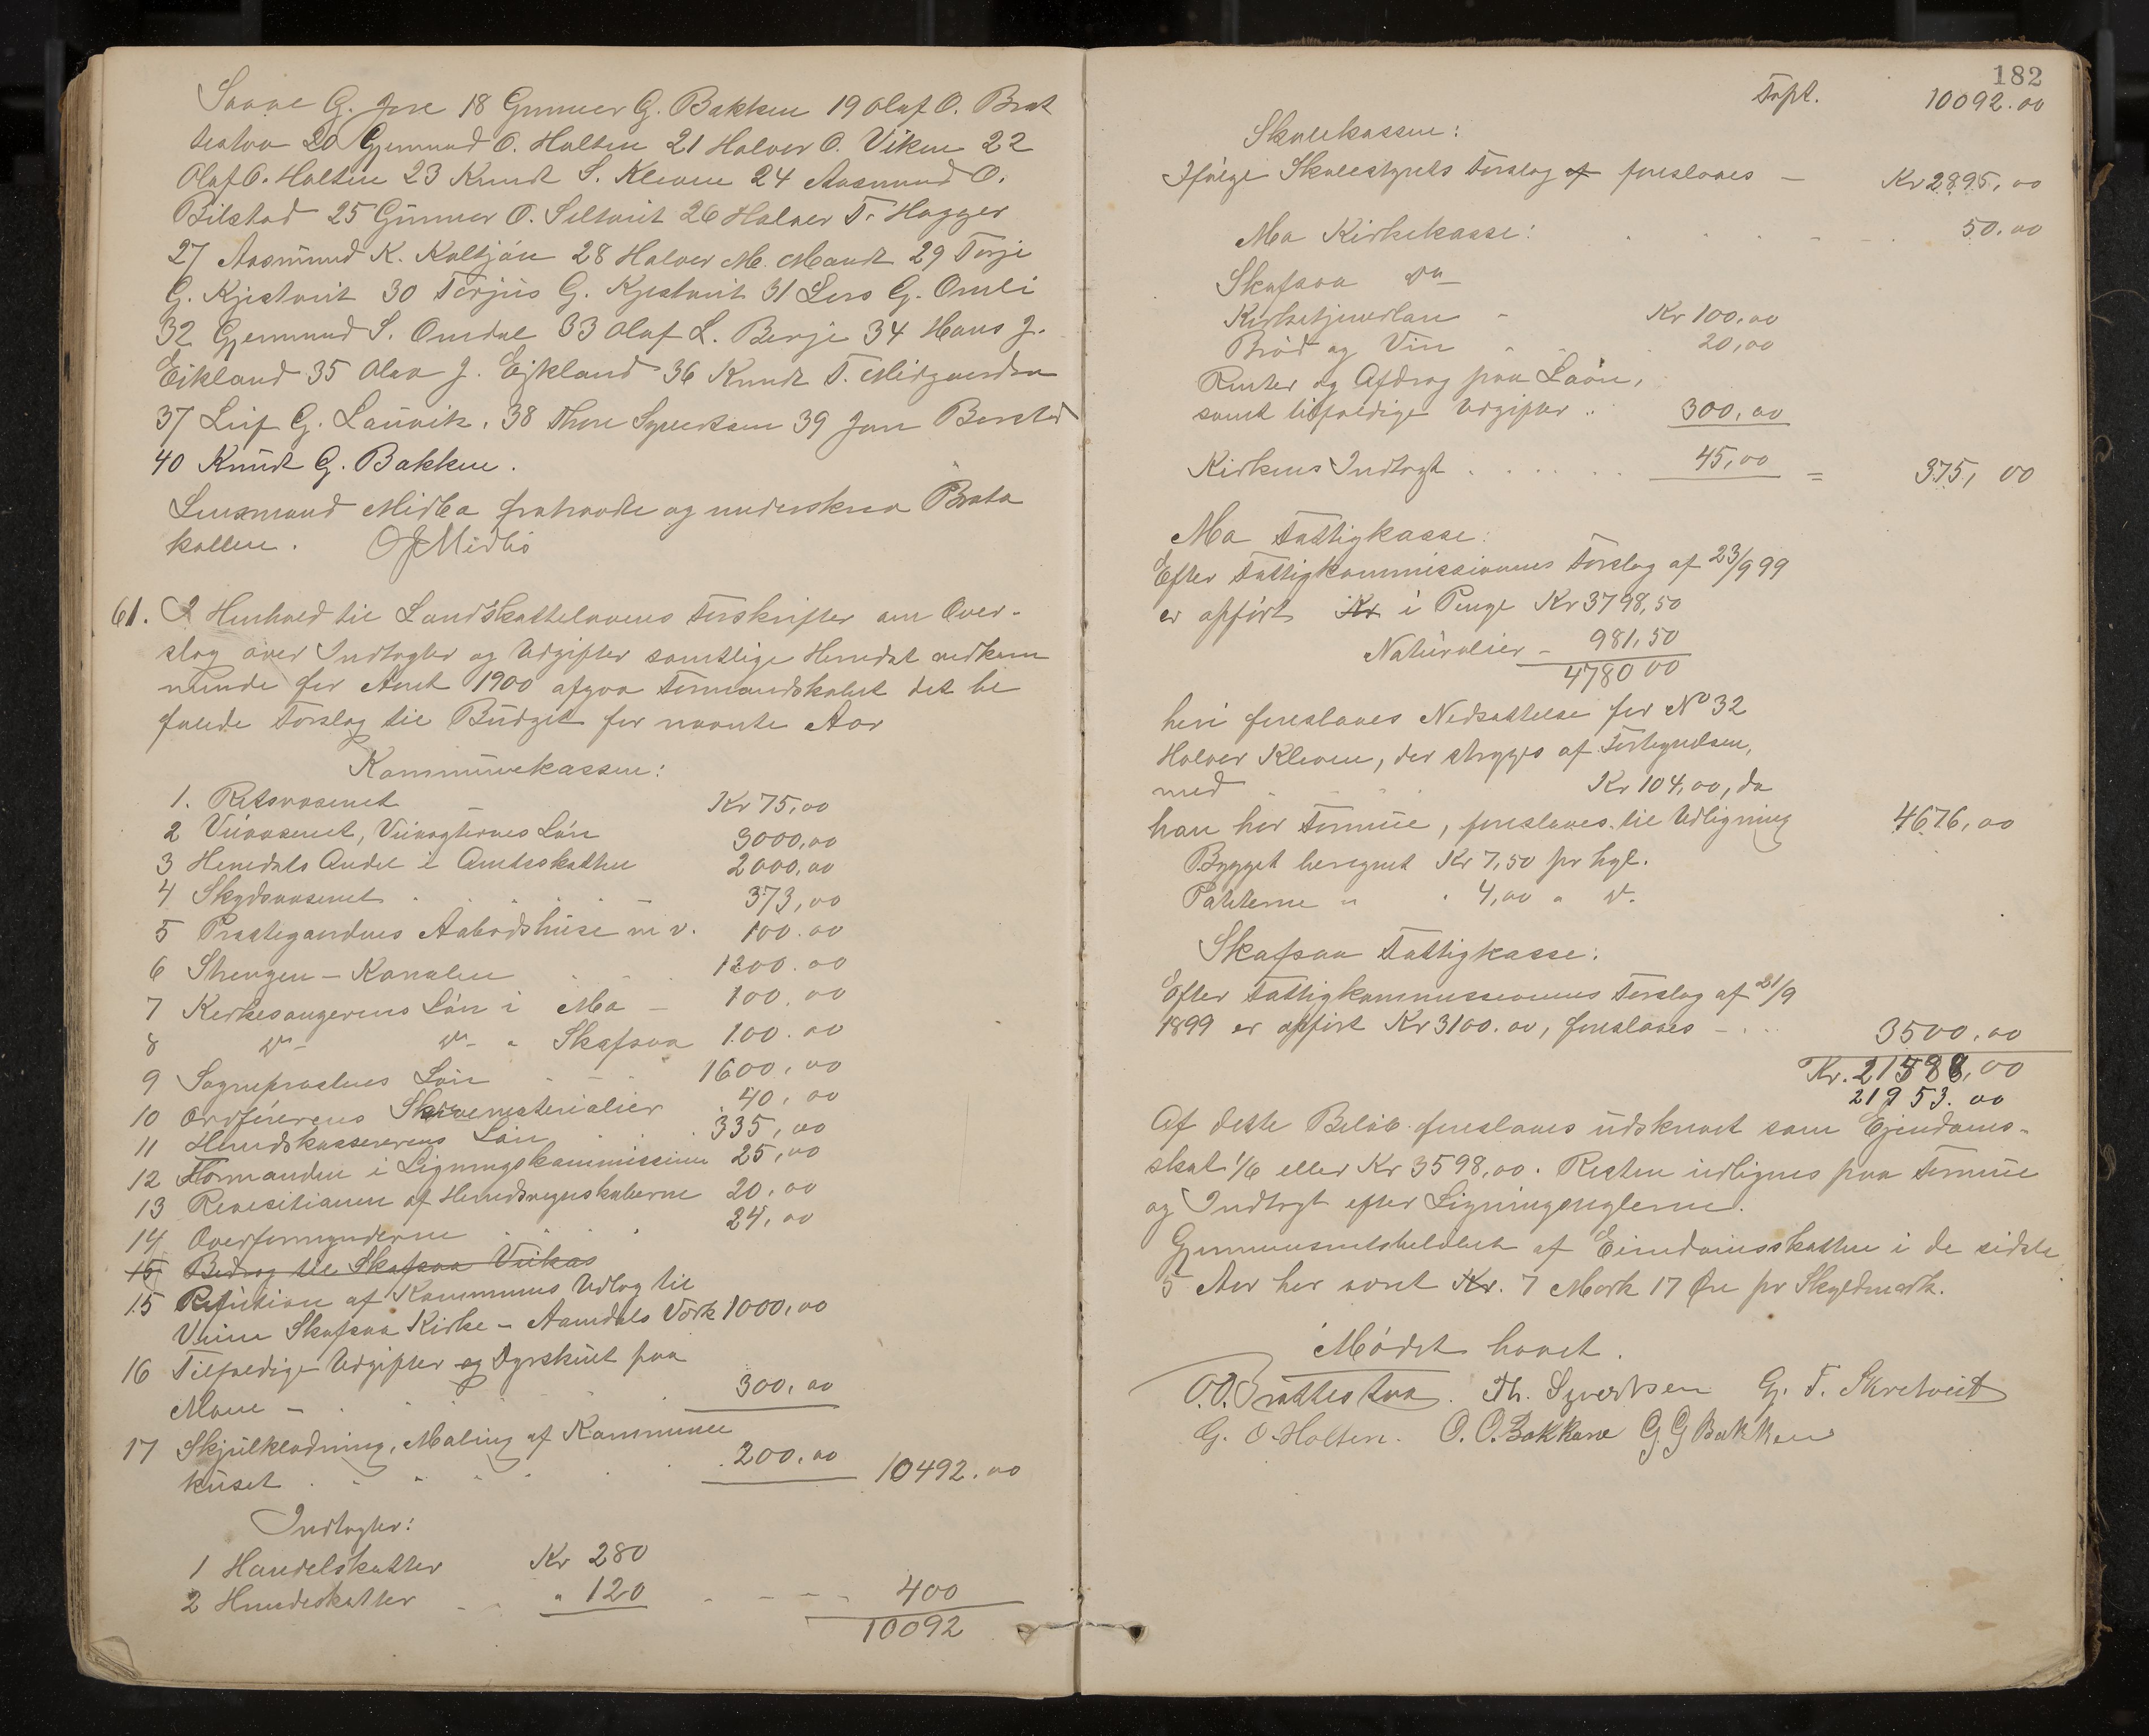 Saave G. Jore 18 Gunner G. Bakken 19 Olaf O. Brat
testaa 20 Gjermund O. Holten 21 Halvor O. Viken 22
Olaf O. Holten 23 Knudt S. Kleven 24 Aasmund O.
Bilstad 25 Gunnar O. Seltveit 26 Halvor T. Hegger
27 Aasmund K. Kaltjön 28 Halvor M. Maudt 29 Torje
G. Kjestveit 30 Torjus G. Kjestveit 31 Lars G. Omli
32 Gjermund S. Omdal 33 Olaf L. Berje 34 Hans J.
Eikland 35 Olav J. Eikland 36 Knudt T. Midgaarden
37 Leif G. Lauvik. 38 Thore Syvertsen 39 Jon Berstad
40 Knudt G. Bakken.
Lensmand Midbø fratraadte og underskrev Proto
kollen. O J Midbö
61. I Henhold til Landskattelovens Forskrifter om Over-
slag over Indtægter og Udgifter samtlige Herredet vedkom
mende for Aaret 1900 afgav Formandskabet det be
falede Forslag til Budget for nævnte Aar
Kommunekassen:
1. Retsvæsenet Kr 75,00
2 Veivæsenet, Veivogternes Løn 3000,00
3 Herredets Andel i Amtsskatten 2000,00
4 Skydsvæsenet 373,00
5 Prestegaardens Aabodshuse m v. 100.00
6 Strengen - Kanalen 1200.00
7 Kirkesangerens Løn i Mo - 100.00
8 do - do - " Skafsaa 100.00
9 Sogneprestens Løn 1600,00
10 Ordførerens Skrivematerialier 40,00
11 Herredskassererens Løn 335,00
12 Formanden i Ligningskommissionen 25,00
13 Revesitionen af Herredsregnskaberne 20,00
14 Overformynderne 24,00
15 Bedrag til Skafsaa Veikas
15 Refution af Kommunens Udlæg til
Veien Skafsaa Kirke - Aamdals Værk 1000,00
16 Tilfældige Udgifter og Dyrskuet paa
Moen - 300,00
17 Skjulklædning, Maling af Kommune
huset 200,00 10492.00
Indtægter:
1 Handelskatter Kr 280
2 Hundeskatter " 120 400
10092
182
Trpt. 10092.00
Skolekassen:
Ifølge Skolestyrets Forslag af foreslaaes - Kr 2895,00
Mo Kirkekasse: 50.00
Skafsaa do -
Kirketjenerløn - Kr 100,00
Brød og Vin 20,00
Renter og Afdrag paa Laan,
samt tilfældige Udgifter 300,00
Kirkens Indtægt 45,00 = 375,00
Mo Fattigkasse:
Efter Fattigkommissionens Forslag af 23/9 99
er opført Kr i Penge Kr 3798,50
Naturalier - 981,50
4780 00
heri foreslaaes Nedsættelse for No 32
Halvor Kleven, der stryges af Fortegnelsen,
med Kr 104,00, da
han har Formue, foreslaaes til Udligning 4676,00
Bygget beregnet Kr 7,50 pr hgl.
Poteterne " " 4,00 " d.
Skafsaa Fattigkasse:
Efter Fattigkommissionens Forslag af 21/9
1899 er opført Kr 3100.00, foreslaaes - 3500.00
Kr. 21588,00
21953.00
Af dette Beløb foreslaaes udskrevet som Ejendoms-
skat 1/6 eller Kr 3598,00. Resten udlignes paa Formue
og Indtægt efter Ligningsreglerne.
Gjennemsnitsbeløbet af Eiendomsskatten i de sidste
5 Aar har været Kr. 7 Mark 17 Øre pr Skyldmark.
Mødet hævet.
O. O. Brattestaa. Th. Syvertsen G. T. Skretveit
G. O. Holten. O. O. Bakkane G G Bakken